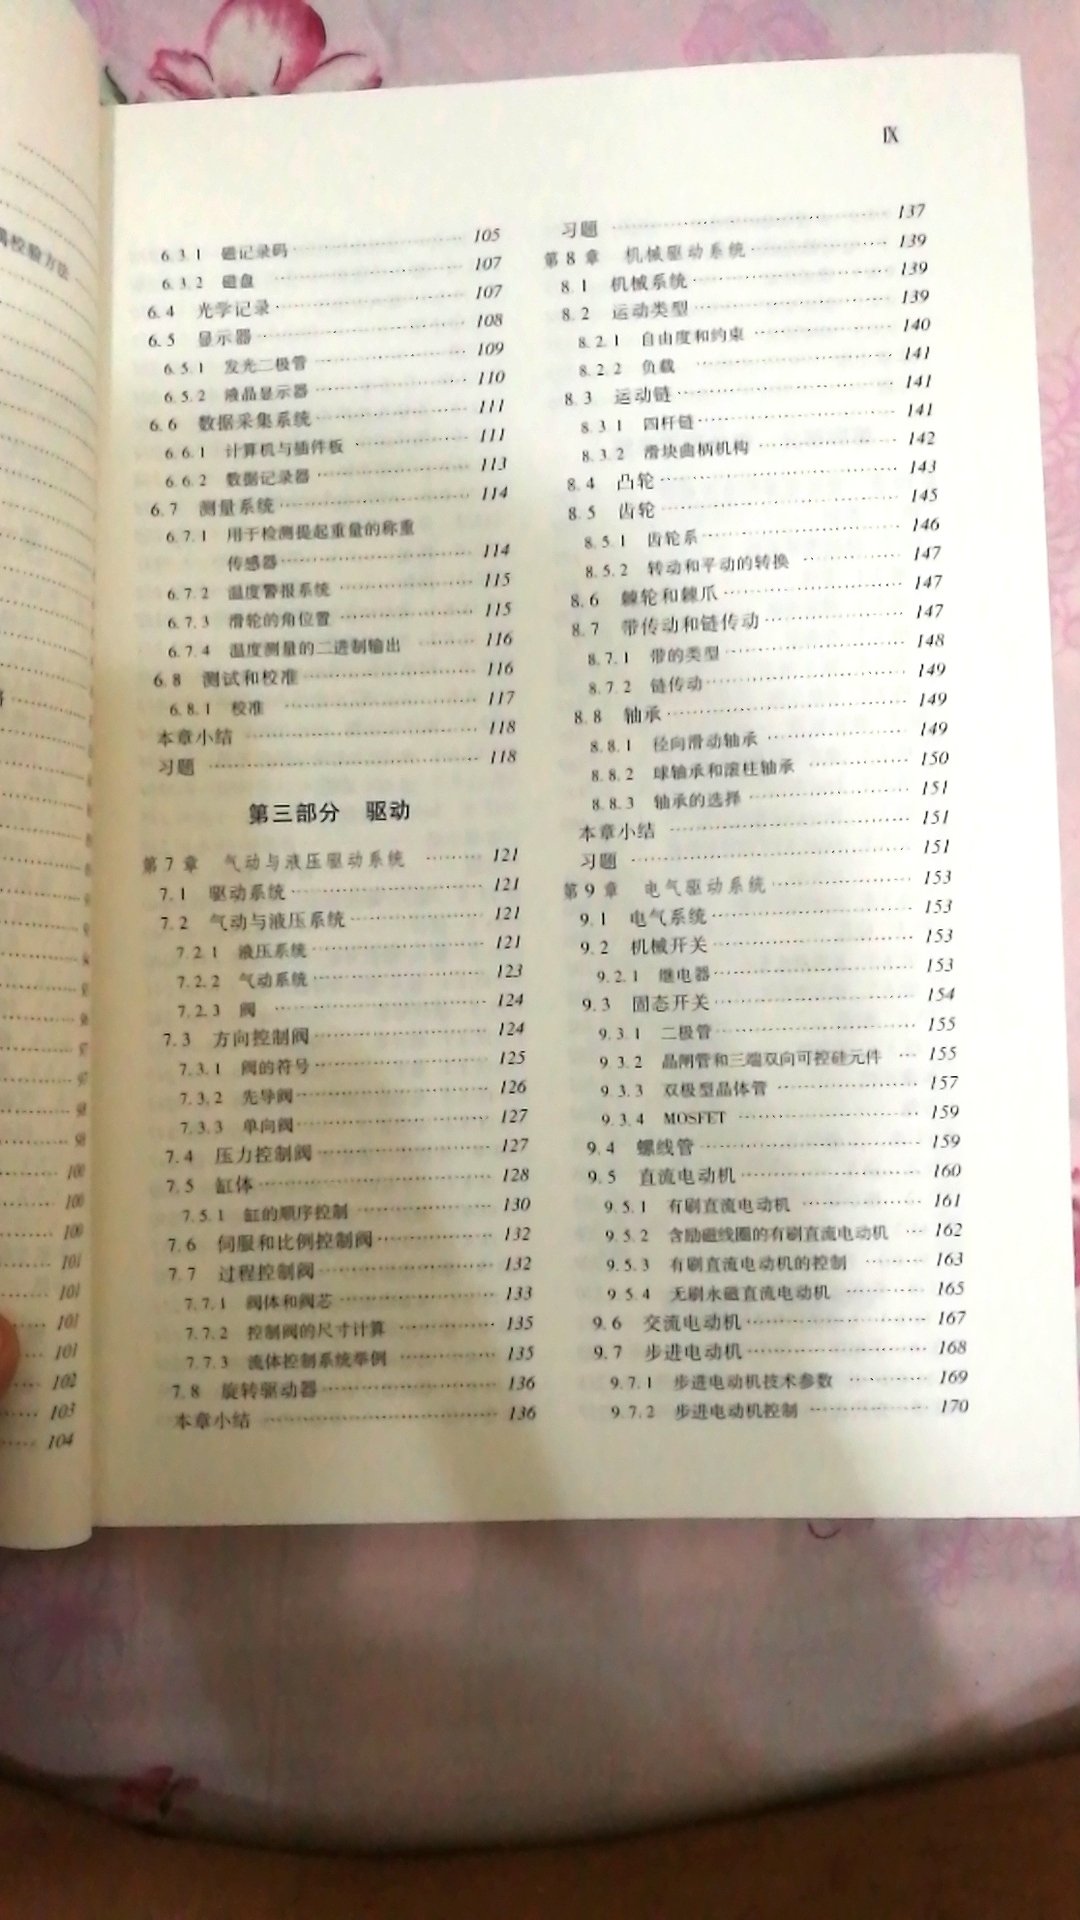 满校验方法
100
100
100
101
101
101
101
102
103
104
Ⅸ
6.3.1 磁记录码 105
6.3.2 磁盘 107
6.4 光学记录 107
6.5 显示器 108
6.5.1 发光二极管 109
6.5.2 液晶显示器 110
6.6 数据采集系统 111
6.6.1 计算机与插件板 111
6.6.2 数据记录器 113
6.7 测量系统 114
6.7.1 用于检测提起重量的称重
传感器 114
6.7.2 温度警报系统 115
6.7.3 滑轮的角位置 115
6.7.4 温度测量的二进制输出 116
6.8 测试和校准 116
6.8.1 校准 117
本章小结 118
习题 118
第三部分 驱动
第7章 气动与液压驱动系统 121
7.1 驱动系统 121
7.2 气动与液压系统 121
7.2.1 液压系统 121
7.2.2 气动系统 123
7.2.3 阀 124
7.3 方向控制阀 124
7.3.1 阀的符号 125
7.3.2 先导阀 126
7.3.3 单向阀 127
7.4 压力控制阀 127
7.5 缸体 128
7.5.1 缸的顺序控制 130
7.6 伺服和比例控制阀 132
7.7 过程控制阀 132
7.7.1 阀体和阀芯 133
7.7.2 控制阀的尺寸计算 135
7.7.3 流体控制系统举例 135
7.8 旋转驱动器 136
本章小结 136
习题 137
第8章 机械驱动系统 139
8.1 机械系统 139
8.2 运动类型 139
8.2.1 自由度和约束 140
8.2.2 负载 141
8.3 运动链 141
8.3.1 四杆链 141
8.3.2 滑块曲柄机构 142
8.4 凸轮 143
8.5 齿轮 145
8.5.1 齿轮系 146
8.5.2 转动和平动的转换 147
8.6 棘轮和棘爪 147
8.7 带传动和链传动 147
8.7.1 带的类型 148
8.7.2 链传动 149
8.8 轴承 149
8.8.1 径向滑动轴承 149
8.8.2 球轴承和滚柱轴承 150
8.8.3 轴承的选择 151
本章小结 151
习题 151
第9章 电气驱动系统 153
9.1 电气系统 153
9.2 机械开关 153
9.2.1 继电器 153
9.3 固态开关 154
9.3.1 二极管 155
9.3.2 晶闸管和三端双向可控硅元件 155
9.3.3 双极型晶体管 157
9.3.4 MOSFET 159
9.4 螺线管 159
9.5 直流电动机 160
9.5.1 有刷直流电动机 161
9.5.2 含励磁线圈的有刷直流电动机 162
9.5.3 有刷直流电动机的控制 163
9.5.4 无刷永磁直流电动机 165
9.6 交流电动机 167
9.7 步进电动机 168
9.7.1 步进电动机技术参数 169
9.7.2 步进电动机控制 170